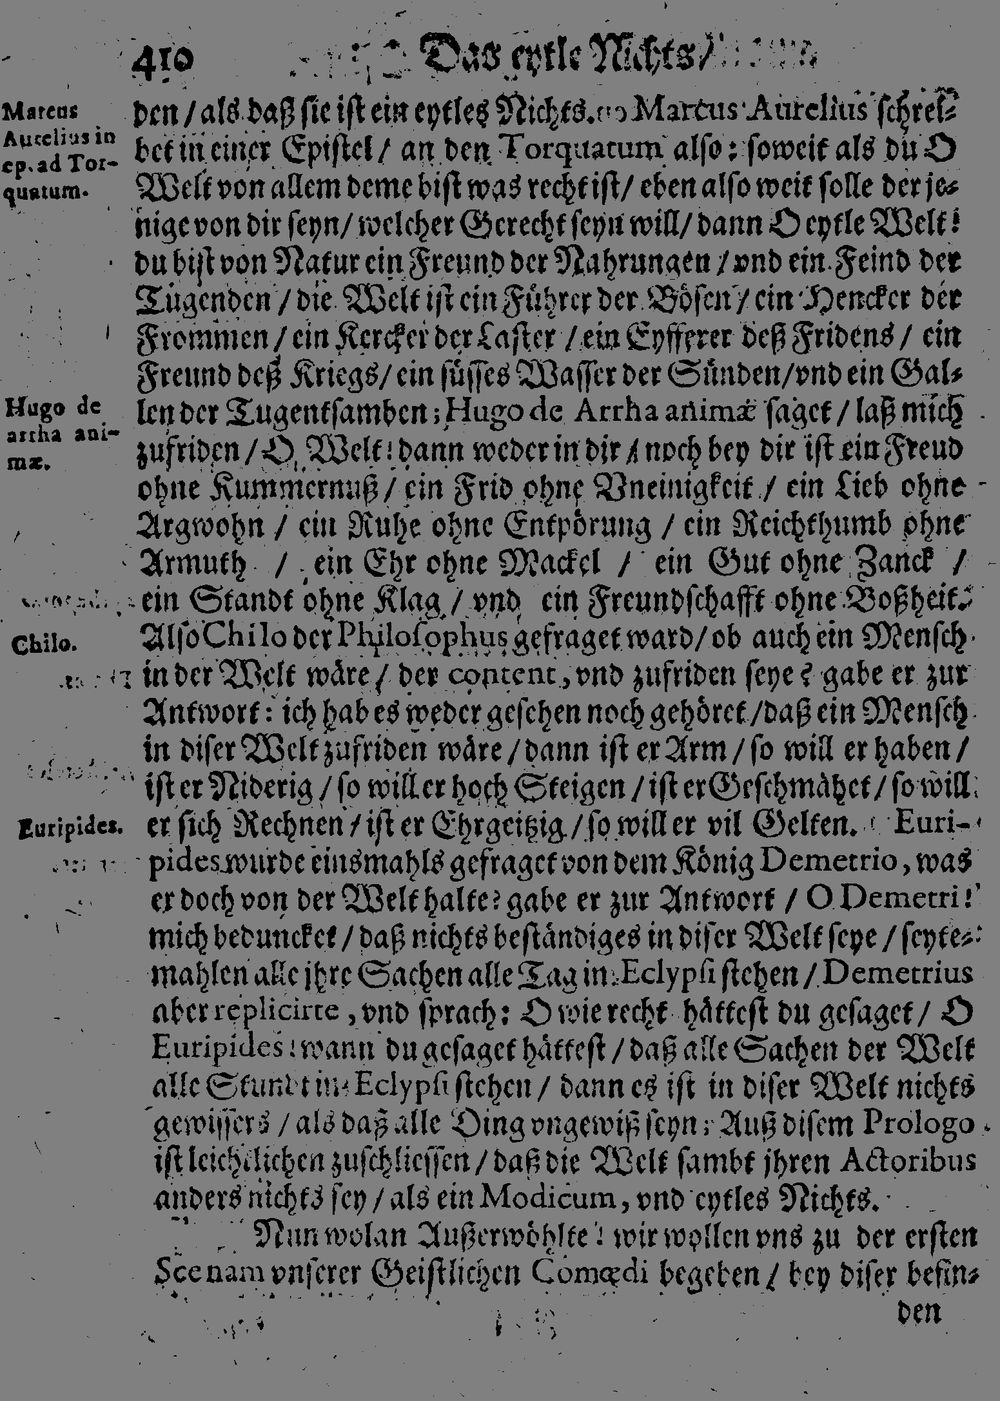 410 Das eytle Nichts/
Marcus
Aurelius in
ep. ad Tor-
quatum.
den / als daß sie ist ein eytles Nichts. Marcus Aurelius schrei-
bet in einer Epistel / an den Torquatum also: soweit als du O
Welt von allem deme bist was recht ist / eben also weit solle der je-
nige von dir seyn / welcher Gerecht seyn will / dann O eytle Welt!
du bist von Natur ein Freund der Nahrungen / vnd ein Feind der
Tugenden / die Welt ist ein Führer der Bösen / ein Hencker der
Frommen / ein Kercker der Laster / ein Eyfferer deß Fridens / ein
Freund deß Kriegs / ein süsses Wasser der Sünden / vnd ein Gal-
Hugo de
arrha ani-
mæ.
len der Tugentsamben; Hugo de Arrha animæ saget / laß mich
zufriden / O Welt! dann weder in dir / noch bey dir ist ein Freud
ohne Kummernuß / ein Frid ohne Vneinigkeit / ein Lieb ohne
Argwohn / ein Ruhe ohne Entpörung / ein Reichthumb ohne
Armuth / ein Ehr ohne Mackel / ein Gut ohne Zanck /
ein Standt ohne Klag / vnd ein Freundschafft ohne Boßheit.
Chilo.
Also Chilo der Philosophus gefraget ward / ob auch ein Mensch
in der Welt wäre / der content, vnd zufriden seye? gabe er zur
Antwort: ich hab es weder gesehen noch gehöret / daß ein Mensch
in diser Welt zufriden wäre / dann ist er Arm / so will er haben /
ist er Niderig / so will er hoch Steigen / ist er Geschmähet / so will
Euripides.
er sich Rechnen / ist er Ehrgeitzig / so will er vil Gelten. Euri-
pides wurde einsmahls gefraget von dem König Demetrio, was
er doch von der Welt halte? gabe er zur Antwort / O Demetri!
mich beduncket / daß nichts beständiges in diser Welt seye / seyte-
mahlen alle jhre Sachen alle Tag in Eclypsi stehen / Demetrius
aber replicirte, vnd sprach: O wie recht hättest du gesaget / O
Euripides! wann du gesaget hättest / daß alle Sachen der Welt
alle Stundt in Eclypsi stehen / dann es ist in diser Welt nichts
gewissers / als daß alle Ding vngewiß seyn; Auß disem Prologo
ist leichtlichen zuschliessen / daß die Welt sambt jhren Actoribus
anders nichts sey / als ein Modicum, vnd eytles Nichts.
Nun wolan Außerwöhlte! wir wollen vns zu der ersten
Scenam vnserer Geistlichen Comœdi begeben / bey diser befin-
den